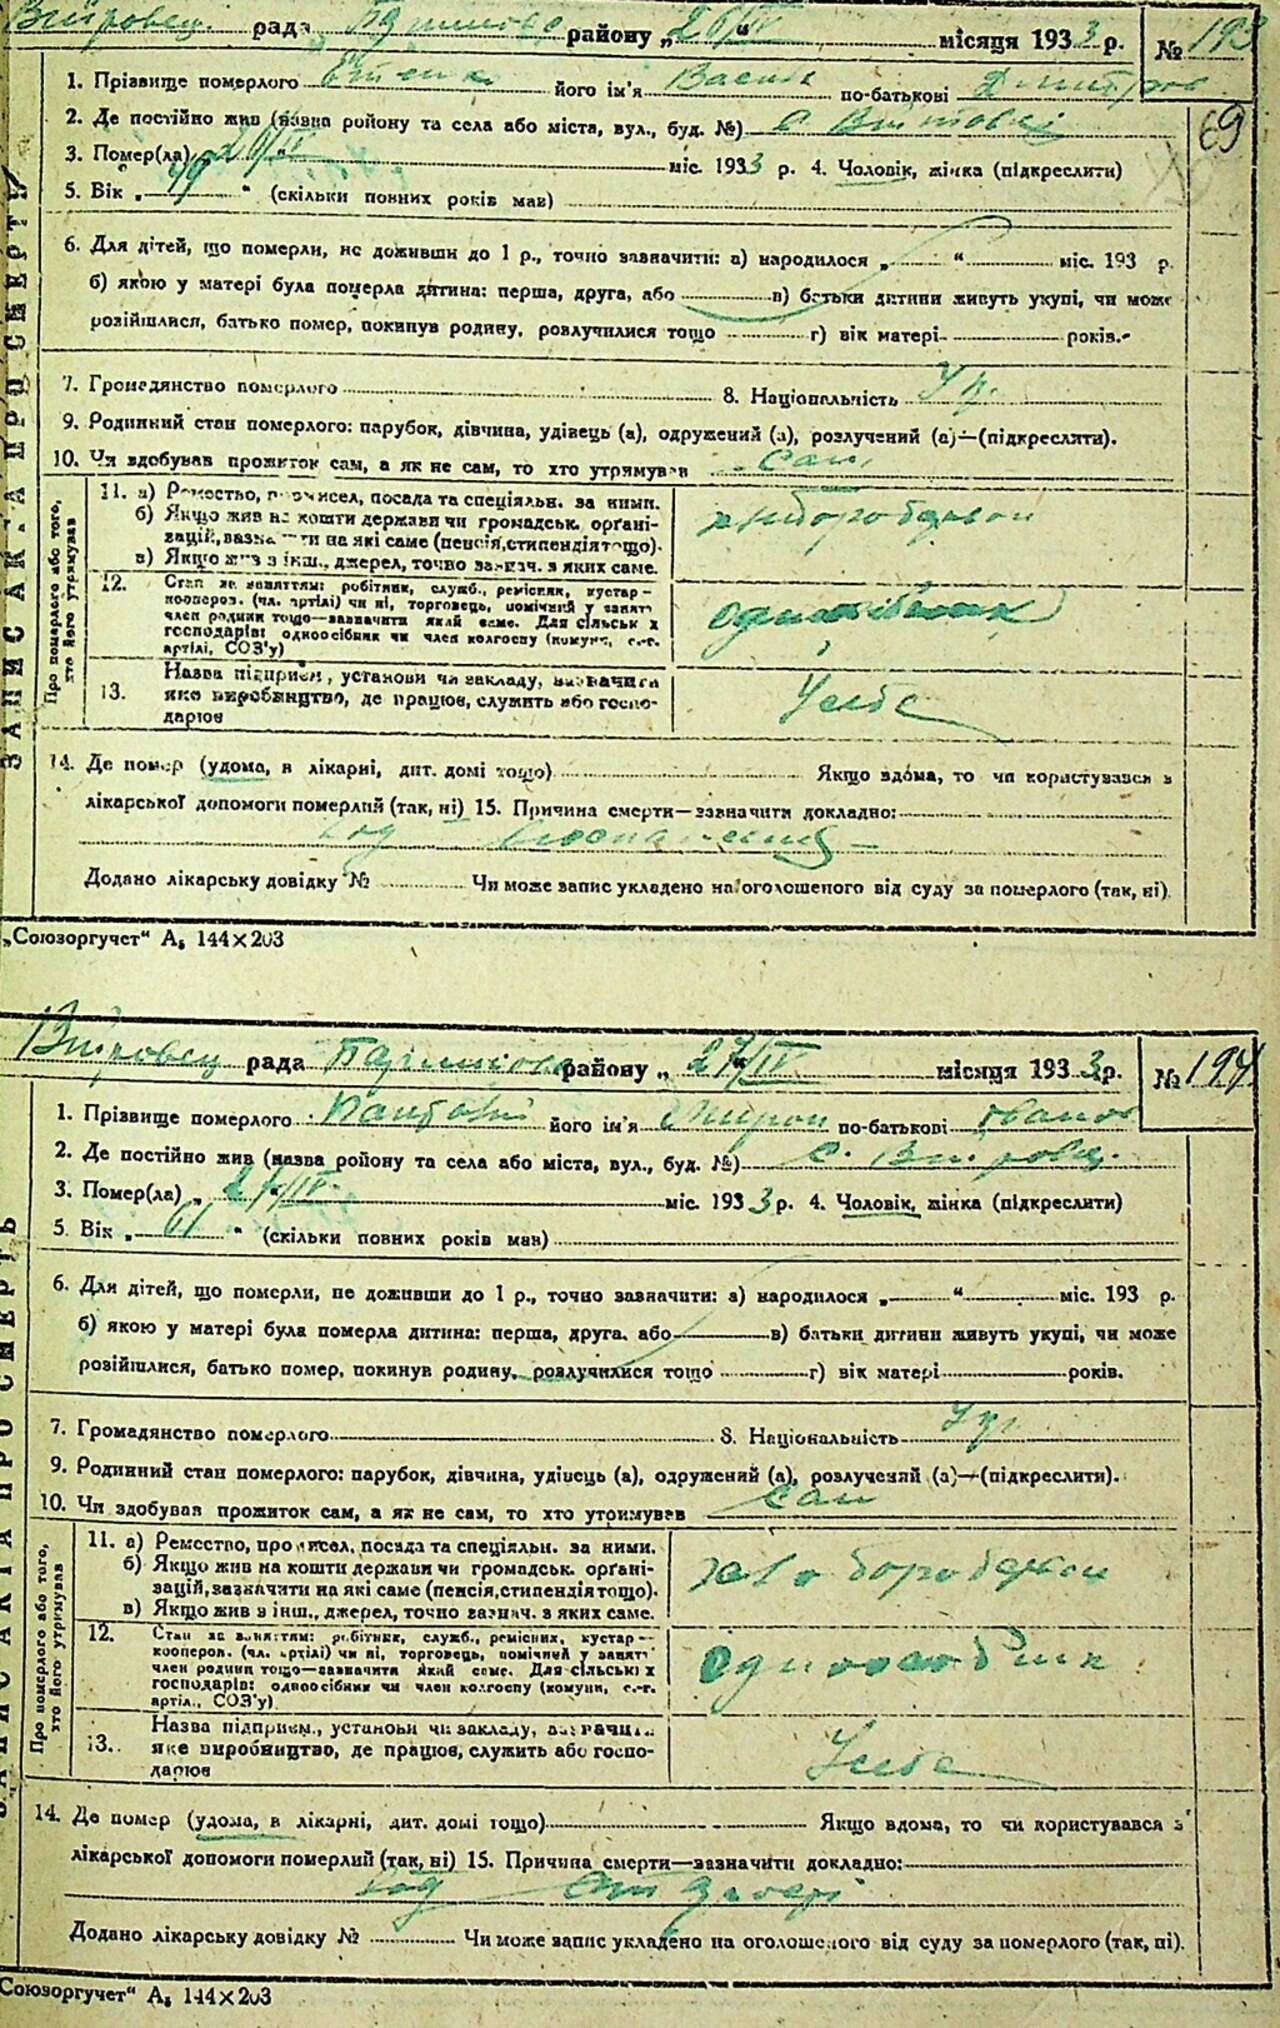 рада району „26/IV“ місяця 1933 р. № 193
69
ЗАПИС АКТА ПРО СМЕРТЬ
1. Прізвище померлого його ім'я Василь по-батькові Дмитров
2. Де постійно жив (назва ройону та села або міста, вул., буд. №) с.
3. Помер(ла) „26/IV“ міс. 1933 р. 4. Чоловік, жінка (підкреслити)
5. Вік „49“ (скільки повних років мав)
6. Для дітей, що померли, не доживши до 1 р., точно зазначити: а) народилося „ “ міс. 193 р.
б) якою у матері була померла дитина: перша, друга, або в) батьки дитини живуть укупі, чи може
розійшлися, батько помер, покинув родину, розлучилися тощо г) вік матері років.
7. Громадянство померлого 8. Національність Укр.
9. Родинний стан померлого: парубок, дівчина, удівець (а), одружений (а), розлучений (а)—(підкреслити).
10. Чи здобував прожиток сам, а як не сам, то хто утримував Сам
Про померлого або того, хто його утримував
11. а) Ремество, промисел, посада та спеціяльн. за ними.
б) Якщо жив на кошти держави чи громадськ. орґані-
зацій, зазначити на які саме (пенсія, стипендія тощо).
в) Якщо жив з інш., джерел, точно зазнач. з яких саме.
хлібороб
12. Стан за заняттям: робітник, служб., ремісник, кустар-
кооперов. (чл. артілі) чи ні, торговець, помічний у занят.
член родини тощо—зазначити який саме. Для сільськ х
господарів: одноосібник чи член колгоспу (комуни, с.-г.
артілі, СОЗ'у)
одноосібник
13. Назва підприєм., установи чи закладу, визначити
яке виробництво, де працює, служить або госпо-
дарює
У себе
14. Де помер (удома, в лікарні, дит. домі тощо) Якщо вдома, то чи користувався з
лікарської допомоги померлий (так, ні) 15. Причина смерти—зазначити докладно:
від
Додано лікарську довідку № Чи може запис укладено на оголошеного від суду за померлого (так, ні).
„Союзоргучет“ А₅ 144×203
рада району „27/IV“ місяця 1933 р. № 194
ЗАПИС АКТА ПРО СМЕРТЬ
1. Прізвище померлого його ім'я Мирон по-батькові Іванов
2. Де постійно жив (назва ройону та села або міста, вул., буд. №) С.
3. Помер(ла) „27/IV“ міс. 1933 р. 4. Чоловік, жінка (підкреслити)
5. Вік „61“ (скільки повних років мав)
6. Для дітей, що померли, не доживши до 1 р., точно зазначити: а) народилося „ “ міс. 193 р.
б) якою у матері була померла дитина: перша, друга, або в) батьки дитини живуть укупі, чи може
розійшлися, батько помер, покинув родину, розлучилися тощо г) вік матері років.
7. Громадянство померлого 8. Національність Укр.
9. Родинний стан померлого: парубок, дівчина, удівець (а), одружений (а), розлучений (а)—(підкреслити).
10. Чи здобував прожиток сам, а як не сам, то хто утримував Сам
Про померлого або того, хто його утримував
11. а) Ремество, промисел, посада та спеціяльн. за ними.
б) Якщо жив на кошти держави чи громадськ. орґані-
зацій, зазначити на які саме (пенсія, стипендія тощо).
в) Якщо жив з інш., джерел, точно зазнач. з яких саме.
12. Стан за заняттям: робітник, служб., ремісник, кустар-
кооперов. (чл. артілі) чи ні, торговець, помічний у занят.
член родини тощо—зазначити який саме. Для сільськ х
господарів: одноосібник чи член колгоспу (комуни, с.-г.
артіл., СОЗ'у)
Одноособник
13. Назва підприєм., установи чи закладу, визначити
яке виробництво, де працює, служить або госпо-
дарює
У себе
14. Де помер (удома, в лікарні, дит. домі тощо) Якщо вдома, то чи користувався з
лікарської допомоги померлий (так, ні) 15. Причина смерти—зазначити докладно:
від
Додано лікарську довідку № Чи може запис укладено на оголошеного від суду за померлого (так, ні).
Союзоргучет“ А₅ 144×203